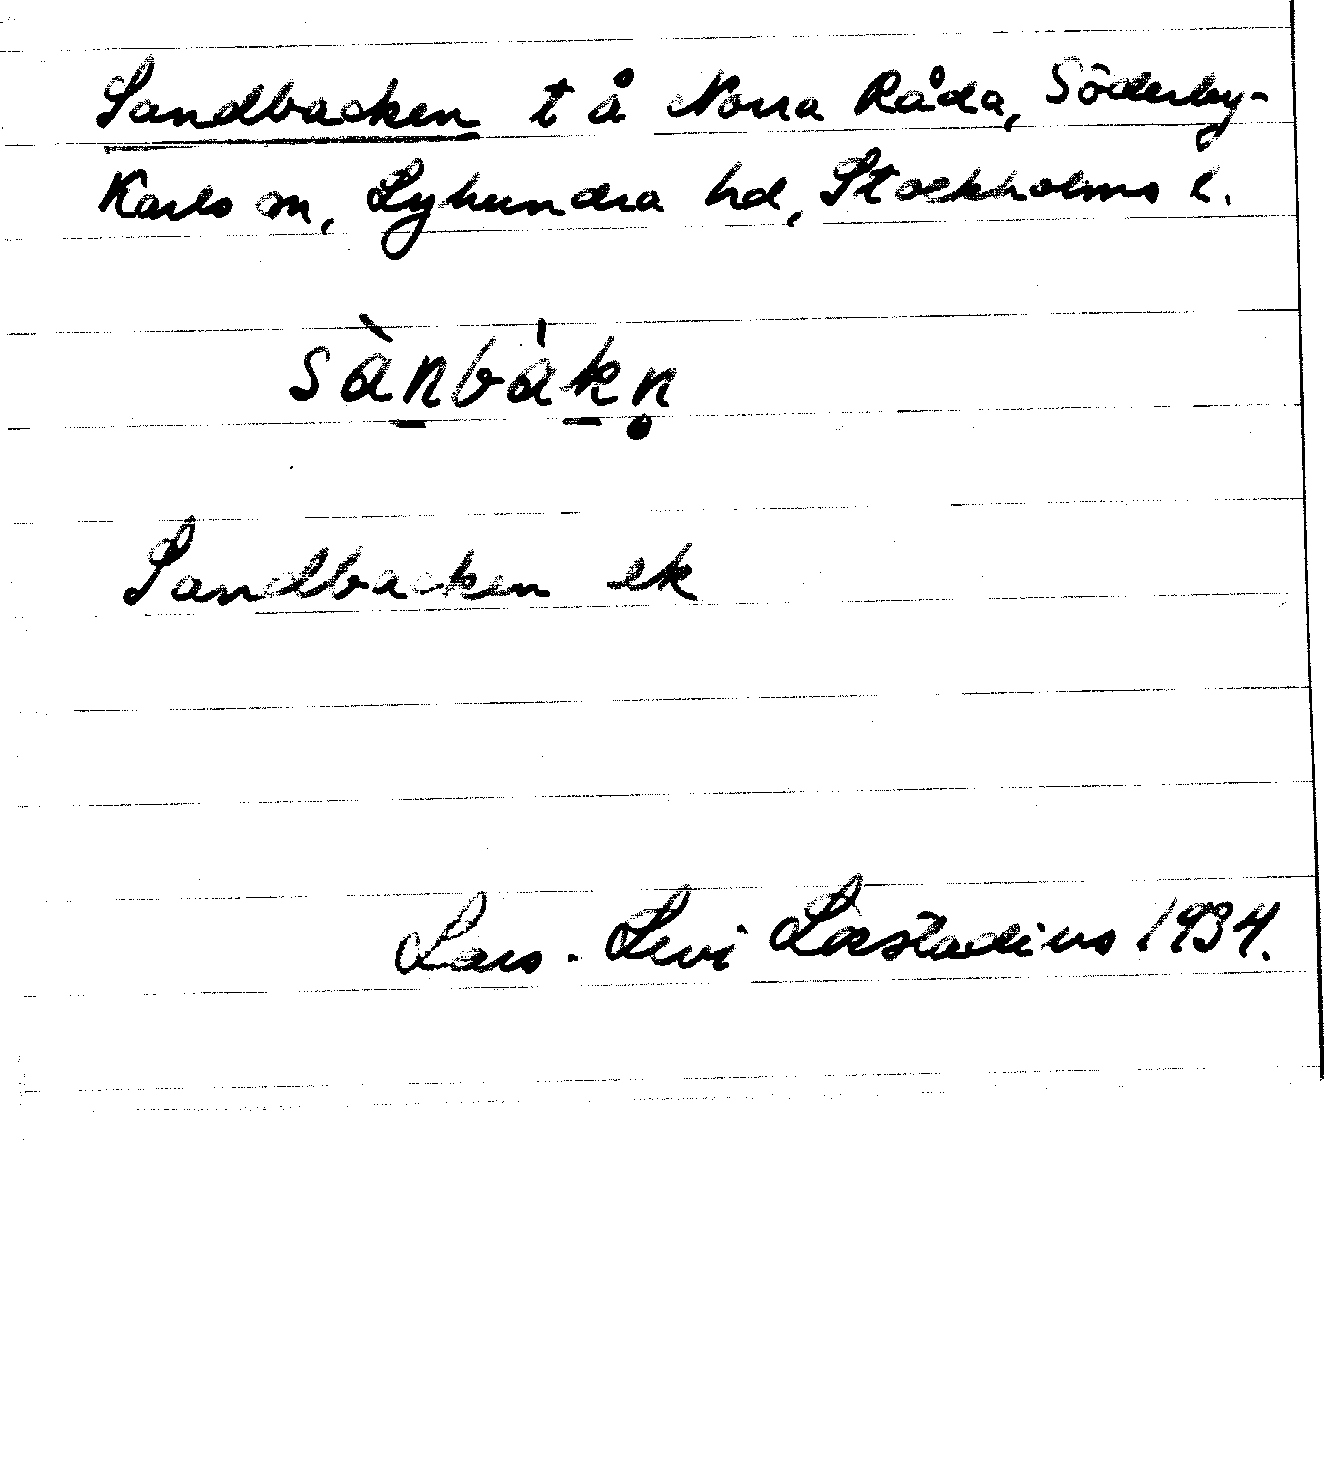 Sandbacken t å Norra Råda, Söderby-
Karls sn, Lyhundra hd, Stockholms l.
sànbákn̥
Sandbacken ek
Lars-Levi Læstadius 1934.